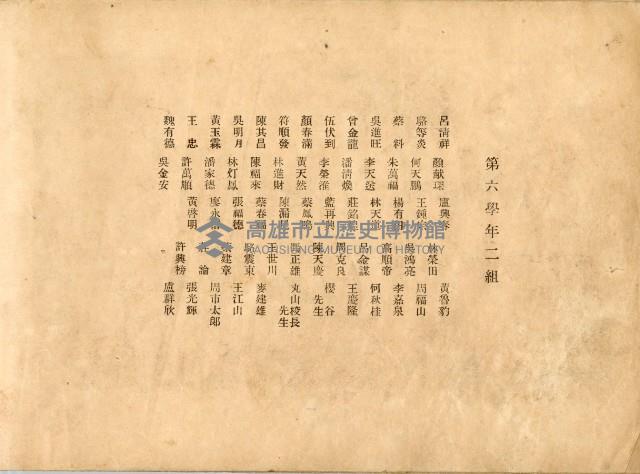 第六學年二組
呂清祥 顏献琛 盧興 林榮田 黃魯豹
駱等炎 何天鵬 王鍾 吳鴻亮 周福山
蔡料 朱萬福 楊有 高順帝 李嘉泉
吳進旺 李天送 林天 呂金謀 何秋桂
曾金龍 潘清煥 莊銘 周克良 王慶隆
伍伏到 李榮淮 藍再興 陳天慶 櫻谷先生
顏春滿 黃天然 蔡鳳鳴 正雄 丸山校長先生
符順發 林進財 陳漏 王世川 麥建雄
陳其昌 陳福來 蔡春 震東 王江山
吳明月 林灯鳳 張福德 建章 周市太郎
黃玉霖 潘家德 廖永 論 張光輝
王忠 許萬順 黃啓明 許興榜 盧群欣
魏有德 吳金安
高雄市立歷史博物館
KAOHSIUNG MUSEUM OF HISTORY